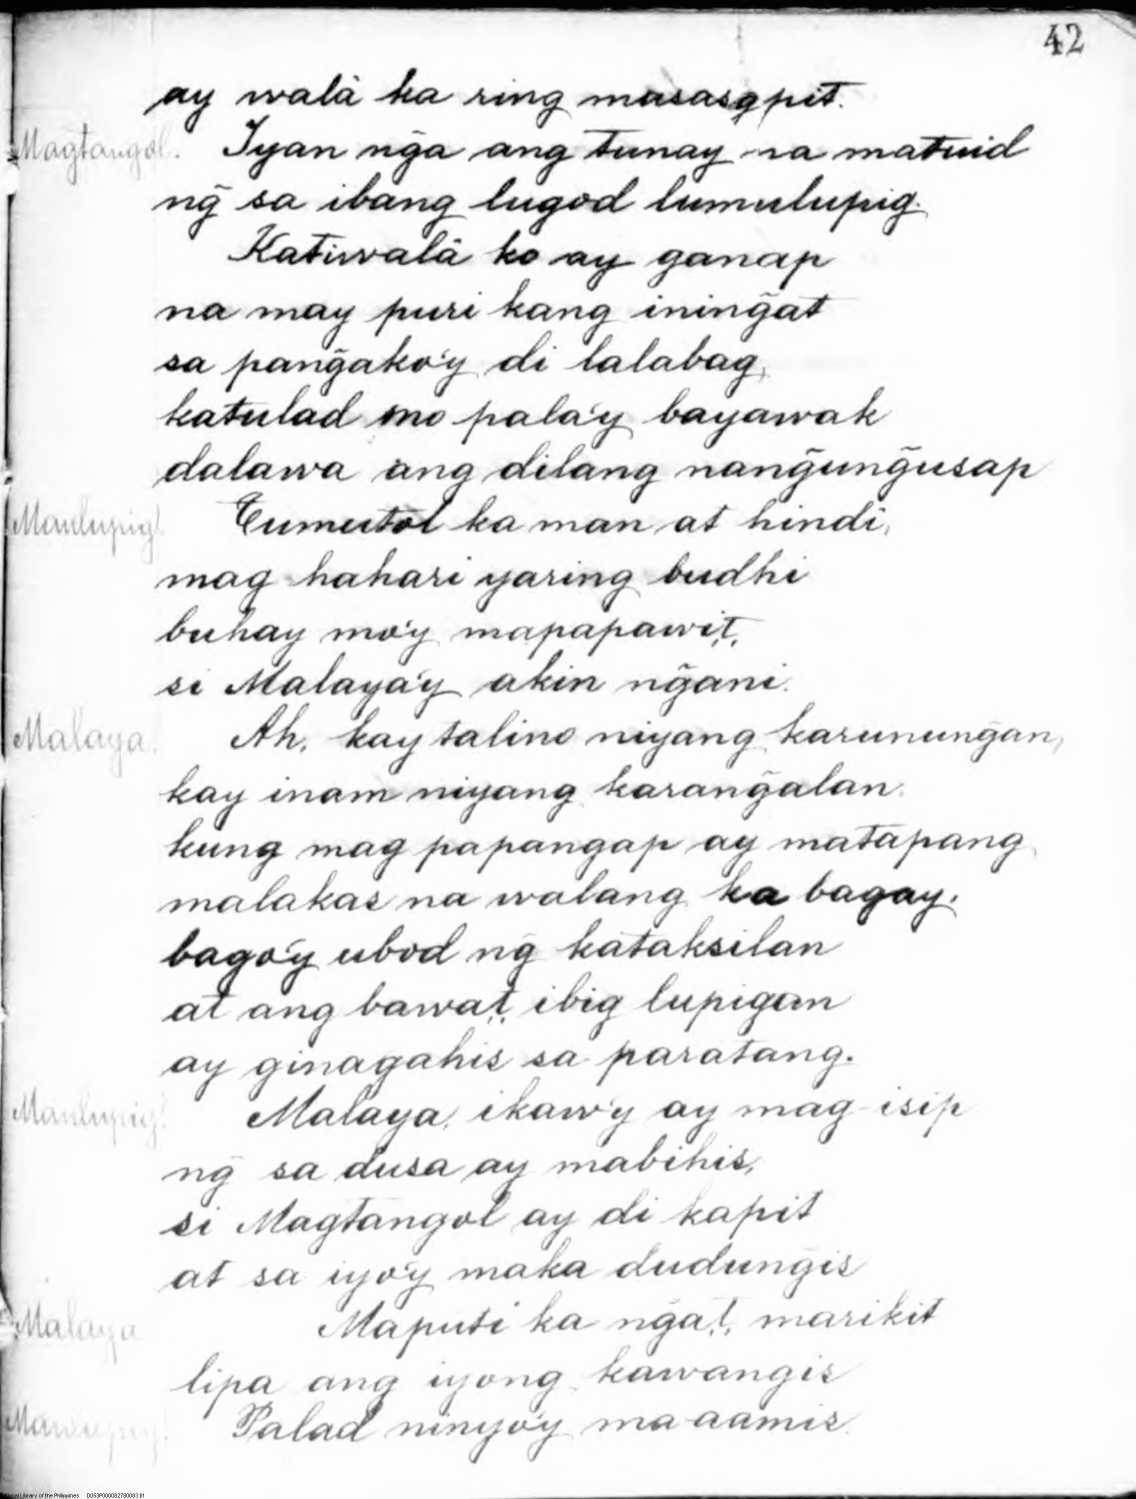 42
ay walâ ka ring masasapit.
Magtangol. Iyan ng̃a ang tunay na matuid
ng̃ sa ibang lugod lumulupig.
Katiwalâ ko ay ganap
na may puri kang ining̃at
sa pang̃ako'y di lalabag,
katulad mo pala'y bayawak
dalawa ang dilang nang̃ung̃usap
Manlupig. Tumutol ka man at hindi,
mag hahari yaring budhi
buhay mo'y mapapawit,
si Malaya'y akin ng̃ani.
Malaya. Ah, kay talino niyang karunung̃an,
kay inam niyang karang̃alan.
kung mag papangap ay matapang
malakas na walang ka bagay.
bago'y ubod ng̃ kataksilan
at ang bawa't, ibig lupigan
ay ginagahis sa paratang.
Manlupig. Malaya, ikaw'y ay mag-isip
ng̃ sa dusa ay mabihis,
si Magtangol ay di kapit
at sa iyo'y maka dudung̃is
Malaya Maputi ka ng̃a't, marikit
lipa ang iyong kawangis
Manlupig. Palad ninyo'y ma-aamis.
National Library of the Philippines